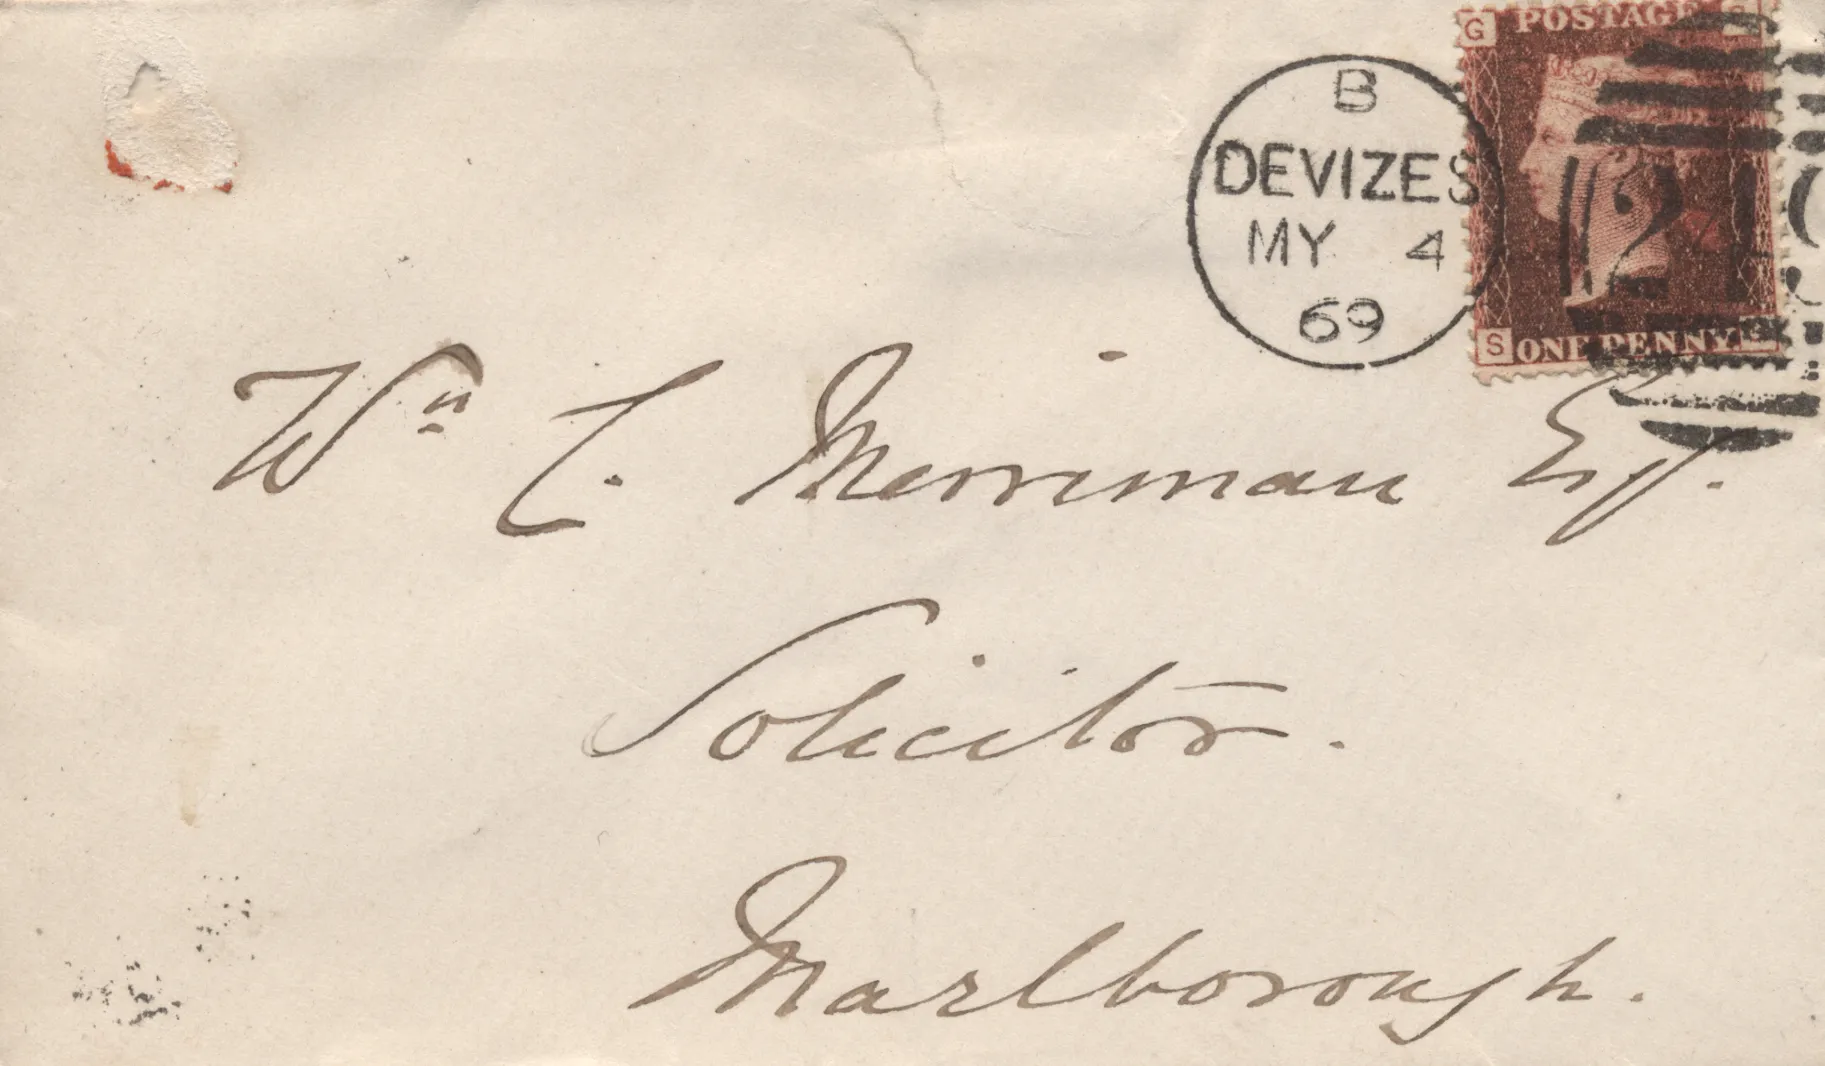 G POSTAGE
B
DEVIZES
MY 4
69
S ONE PENNY
Wm C. Merriman Esq.
Solicitor.
Marlborough.